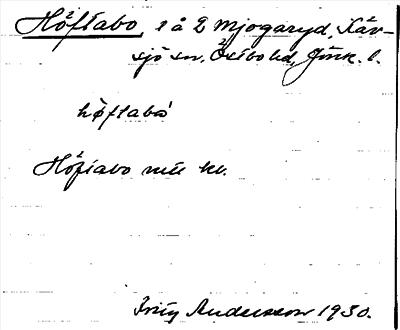 Höftabo, 1 å 2 Mjogaryd, Käv-
sjö sn, Östbo hd, Jönk. l.
høftabo
Höftabo nu kv.
Fritz Andersson 1930.